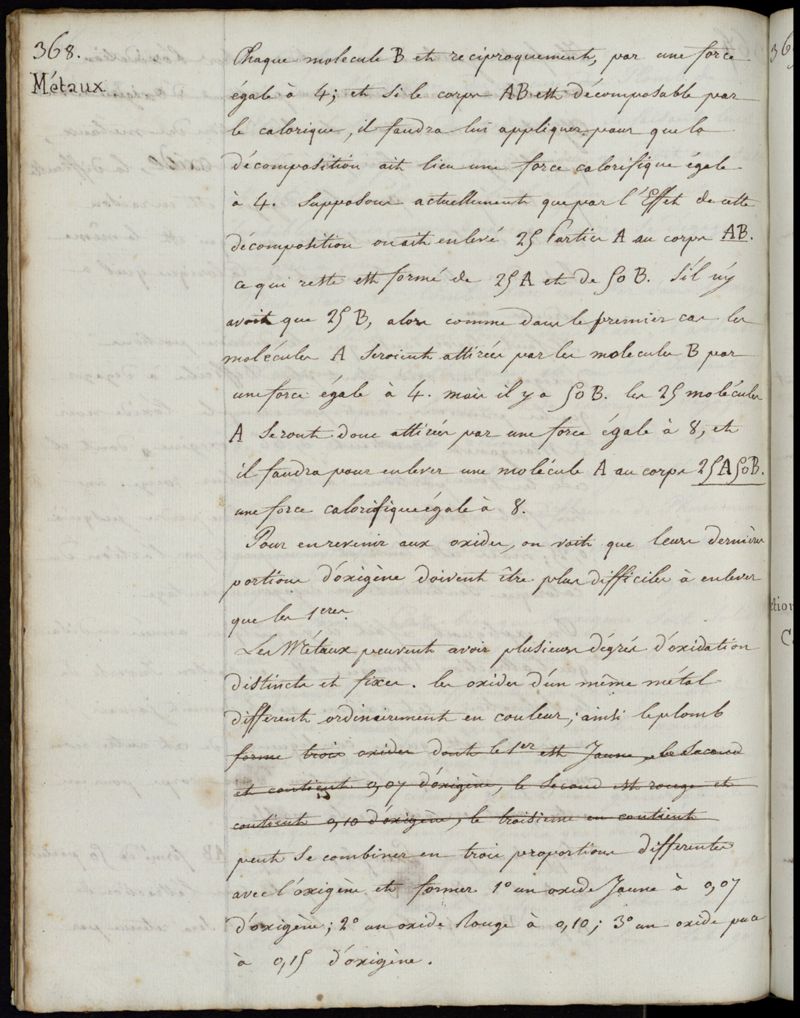 368.
Métaux
Chaque molecule B et reciproquement, par une force
égale à 4; et si le corps AB est décomposable par
le calorique, il faudra lui appliquer pour que la
décomposition ait lieu une force calorifique égale
à 4. Supposons actuellement que par l'Effet de cette
décomposition on ait enlevé 25 Parties A au corps AB.
ce qui reste est formé de 25 A et de 50 B. S'il n'y
avoit que 25 B, alors comme dans le premier cas les
molécules A Seroient attirées par les molecules B par
une force égale à 4. mais il y a 50 B. les 25 molécules
A Seront donc attirées par une force égale à 8, et
il faudra pour enlever une molécule A au corps 25A50B.
une force calorifique égale à 8.
Pour en revenir aux oxides, on voit que leurs dernières
portions d'oxigène doivent être plus difficiles à enlever
que les 1eres
Les Métaux peuvent avoir plusieurs dégrés d'oxidation
distincts et fixes. les oxides d'un même métal
different ordinairement en couleur; ainsi le plomb
forme trois oxides dont le 1er est Jaune, le Second
et contient 0,07 d'oxigène, le Second est rouge et
contient 0,10 d'oxigène, le troisieme en contient
15
peut Se combiner en trois proportions differentes
avec l'oxigène et former 1° un oxide Jaune à 0,07
d'oxigène; 2° un oxide Rouge à 0,10; 3° un oxide puce
à 0,15 d'oxigène.